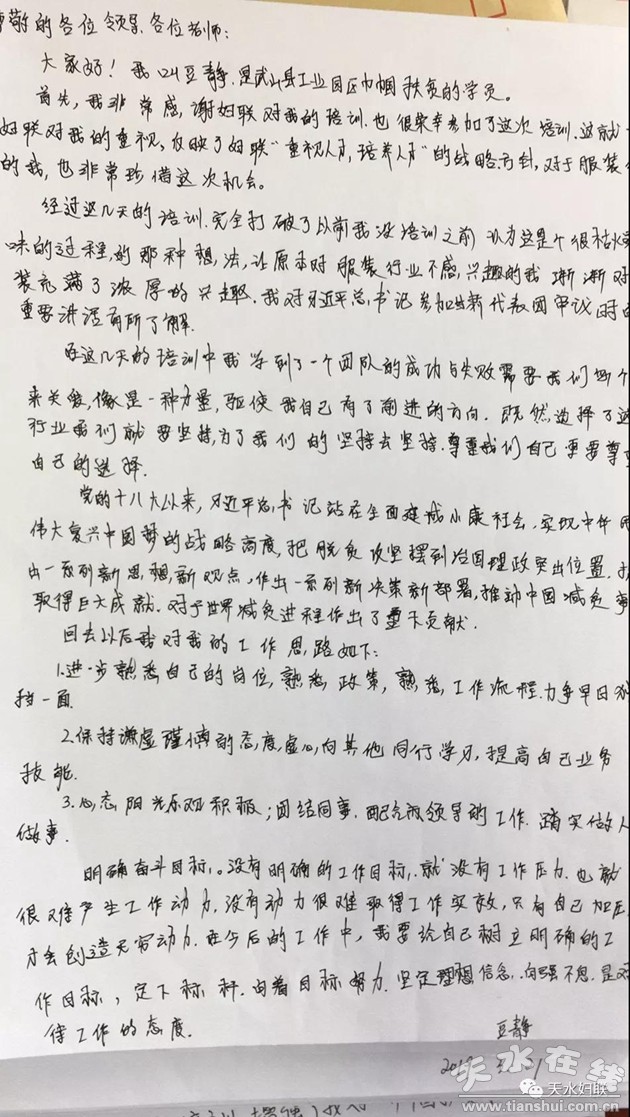 尊敬的各位领导、各位老师:
大家好!我叫豆静.是武山县工业园区巾帼扶贫的学员。
首先,我非常感谢妇联对我的培训.也很荣幸参加了这次培训.这就
妇联对我的重视,反映了妇联“重视人才,培养人才”的战略方针,对于服装
的我,也非常珍惜这次机会。
经过这几天的培训.完全打破了以前我没培训之前认为这是个很枯燥
味的过程,的那种想法,让原本对服装行业不感兴趣的我渐渐对
装充满了浓厚的兴趣.我对习近平总书记参加出新代表团审议时的
重要讲话有所了解.
在这几天的培训中我学到了一个团队的成功与失败需要我们每个
来关爱,像是一种力量,驱使我自己有了前进的方向.既然选择了这
行业我们就要坚持,为了我们的坚持去坚持.尊重我们自己更要尊重
自己的选择.
党的十八大以来,习近平总书记站在全面建成小康社会、实现中华民
伟大复兴中国梦的战略高度,把脱贫攻坚摆到治国理政突出位置.提
出一系列新思想新观点,作出一系列新决策新部署,推动中国减贫事
取得巨大成就.对于世界减贫进程作出了重大贡献.
回去以后我对我的工作思路如下:
1.进一步熟悉自己的岗位,熟悉政策,熟悉工作流程.力争早日独
挡一面.
2.保持谦虚谨慎的态度,虚心向其他同行学习,提高自己业务
技能.
3.心态阳光乐观积极;团结同事.配合领导的工作.踏实做人
做事.
明确奋斗目标,。没有明确的工作目标,就没有工作压力.也就
很难产生工作动力,没有动力很难取得工作实效,只有自己加压
才会创造无穷动力.在今后的工作中,我要给自己树立明确的工
作目标,定下标杆.向着目标努力.坚定理想信念,向强不息.是对
待工作的态度.
豆静
天水在线
天水妇联
www.tianshui.com.cn